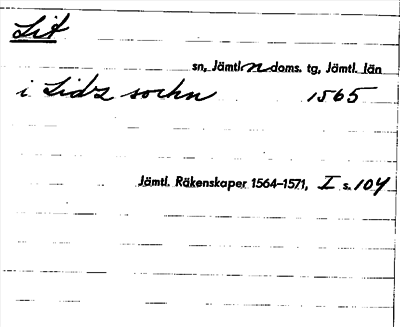 Lit
sn, Jämtl. n doms. tg, Jämtl. län
i Lidz sochn 1565
Jämtl. Räkenskaper 1564–1571, I s. 104